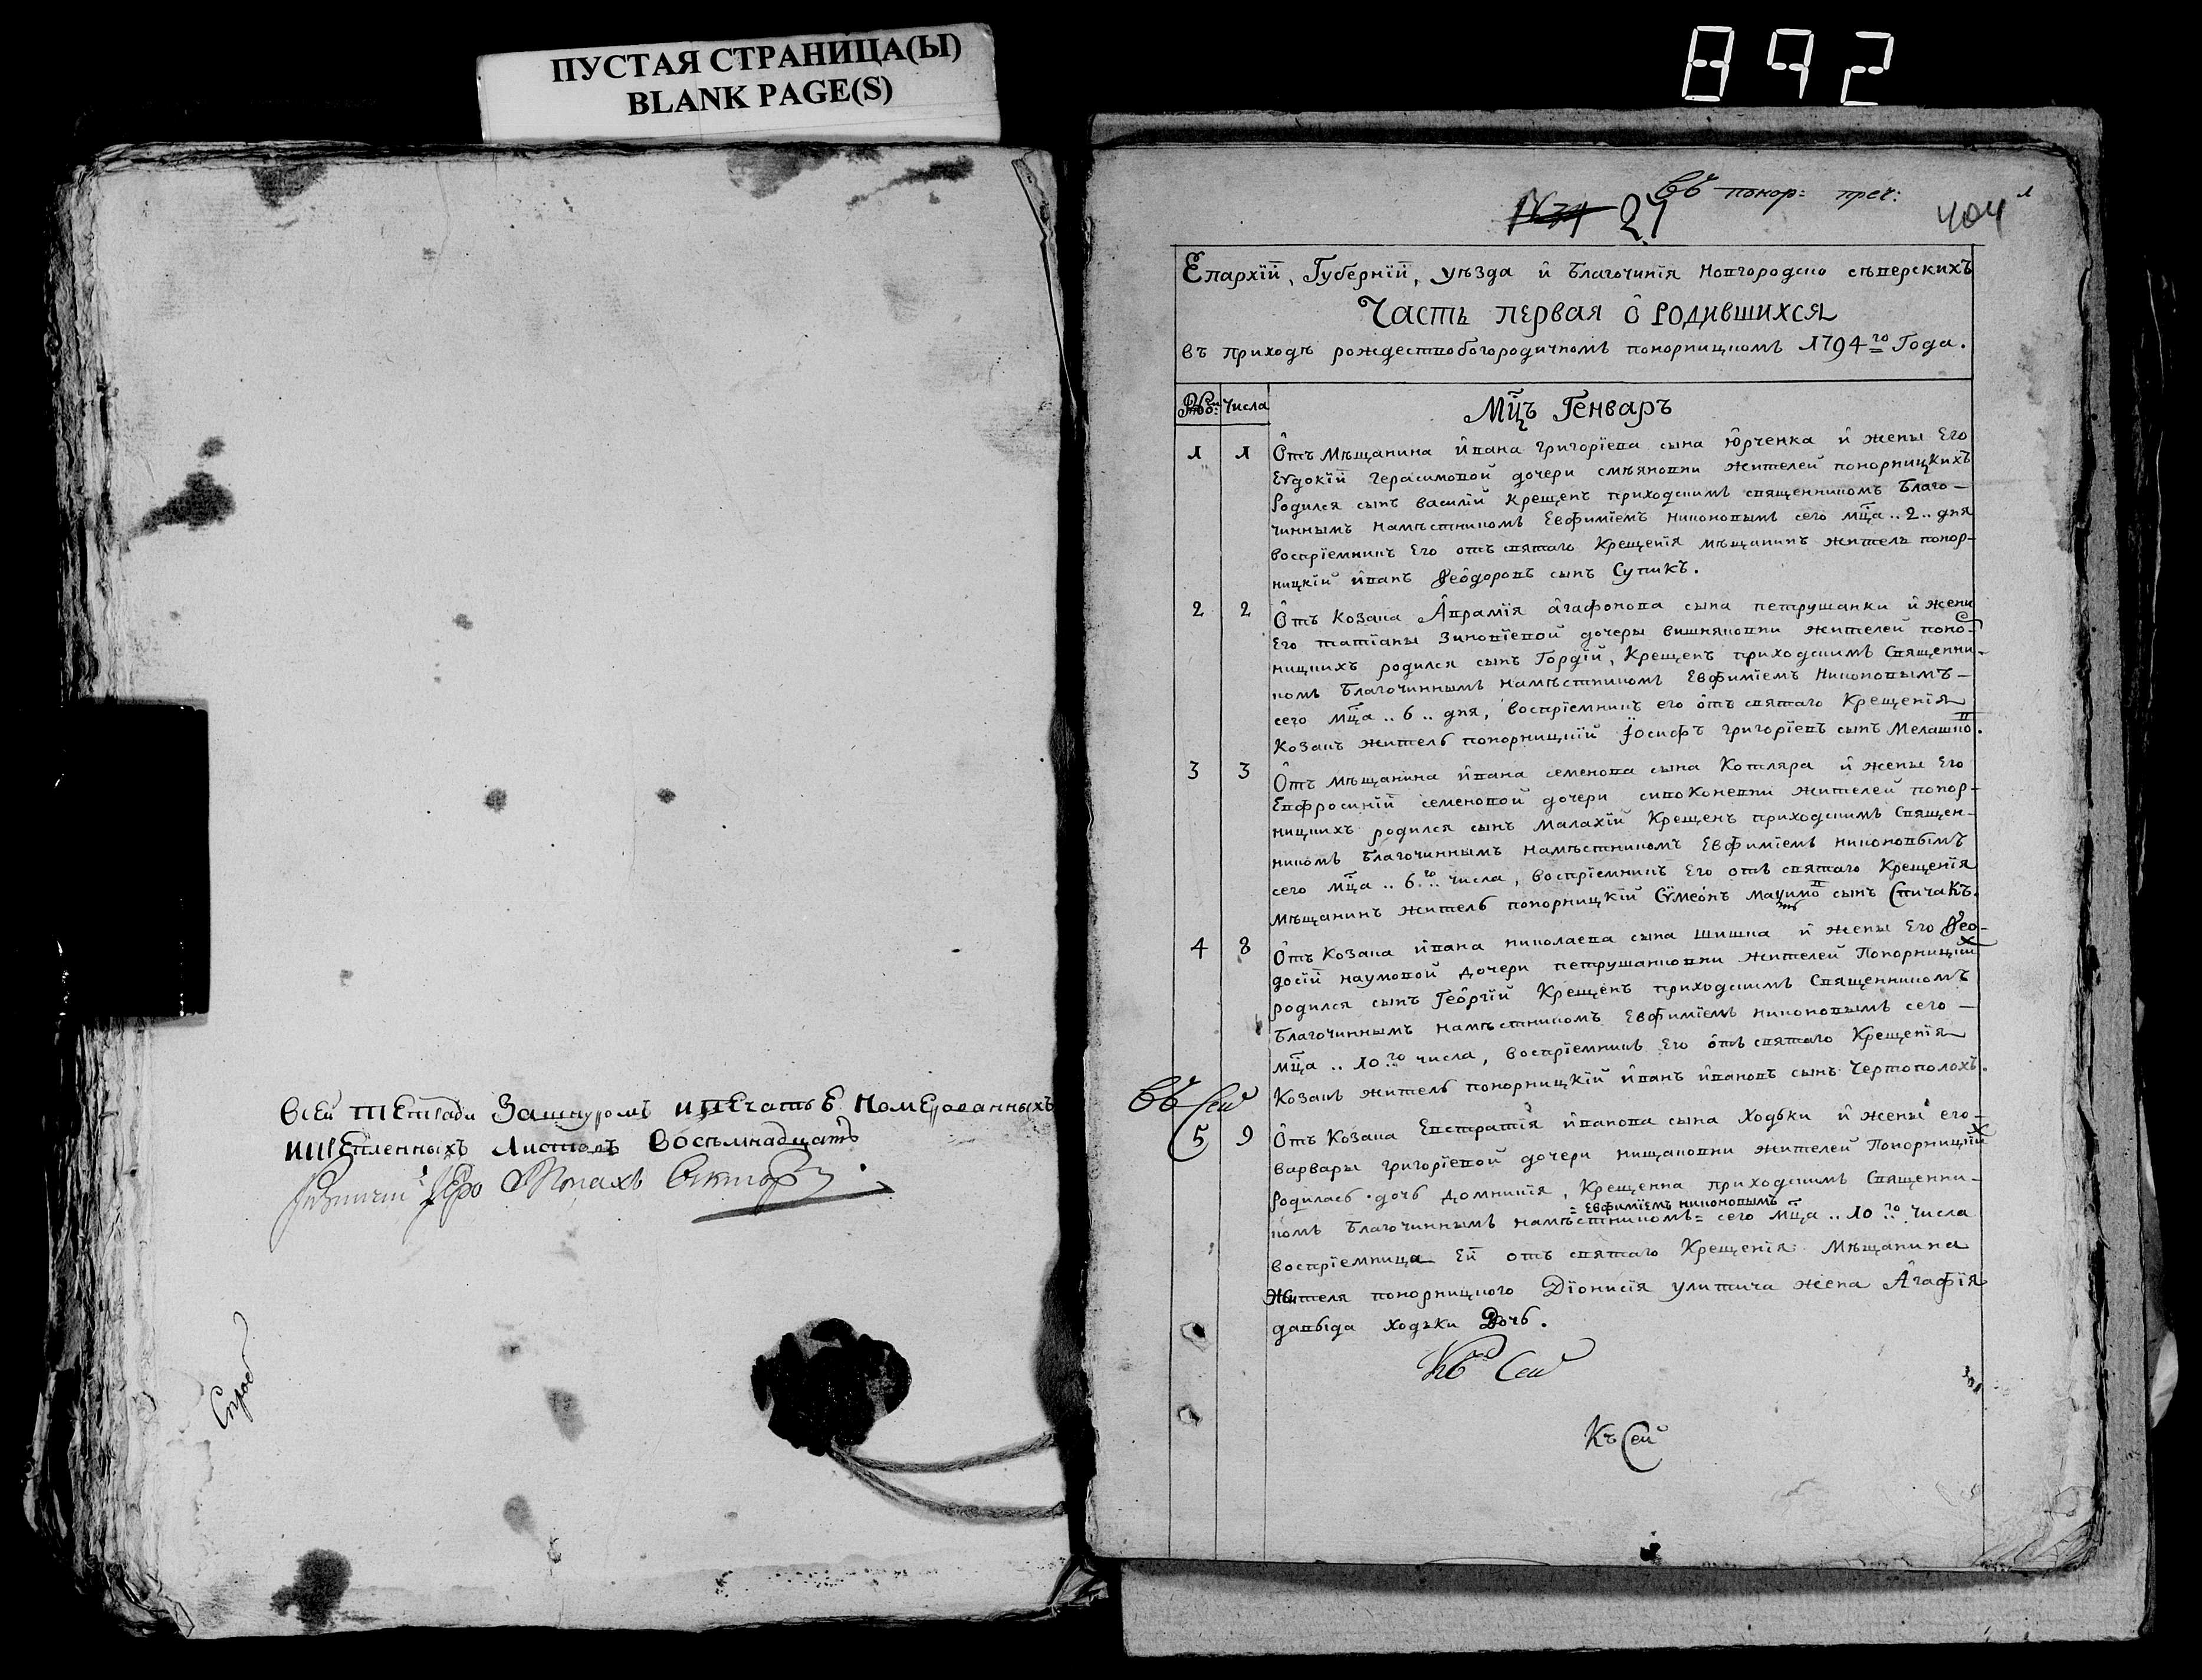 ПУСТАЯ СТРАНИЦА(Ы)
BLANK PAGE(S)
892
Всей тетради Зашнуромъ ипечатьѣ Номерованныхъ
Листовъ Восемнадцать
Іеро Монахъ
въ понор: преч:
21
404
Епархїй, Губернїй, уѣзда и Благочинїя Новгородско сѣверскихъ
Часть первая о Родившихся
въ приходѣ рождествобогородичномъ понорницкомъ 1794го Года.
Числа
Мцъ Генваръ
1 1 Отъ Мѣщанина Ивана Григорїева сына Юрченка и жены Его
Еѵдокїй Герасимовой дочери смѣяновни жителей понорницкихъ
Родился сынъ василїй Крещенъ приходскимъ священникомъ Благо-
чиннымъ намѣстникомъ Евфимїемъ Никоновымъ сего мца .. 2 .. дня
воспрїемникъ Его отъ святаго Крещенїя мѣщанинъ житель понор-
ницкїй иванъ Ѳеодоровъ сынъ Супикъ.
2 2 Отъ Козака Аврамїя агафонова сына петрушанки и жени
Его татїаны Зиновїевой дочеры вишняковни жителей поно-
ницкихъ родился сынъ Гордїй, Крещенъ приходскимъ Священни-
комъ Благочиннымъ намѣстникомъ Евфимїемъ Никоновымъ-
сего мца .. 6 .. дня, воспрїемникъ его отъ святаго Крещенїя
Козакъ житель понорницкїй Іосифъ григорїевъ сынъ Мелашко.
3 3 Отъ мѣщанина ивана семенова сына Котляра и жены Его
Евфросинїй семеновой дочери сивоконевни жителей понор-
ницкихъ родился сынъ Малахїй Крещенъ приходскимъ Священ-
никомъ Благочиннымъ намѣстникомъ Евфимїемъ никоновымъ
сего мца .. 6го .. числа, воспрїемникъ Его отъ святаго Крещенїя
мѣщанинъ житель понорницкїй Сѵмеонъ сынъ Спичакъ.
4 8 Отъ Козака ивана николаева сына шишка и жены Его Ѳео-
досїй наумовой дочери петрушанковни жителей Понорницкїй
родился сынъ Георгїй Крещенъ приходскимъ Священникомъ
Благочиннымъ намѣстникомъ Евфимїемъ никоновымъ сего-
мца .. 10го числа, воспрїемникъ Его отъ святаго Крещенїя
Козакъ житель понорницкїй иванъ ивановъ сынъ Чертополохъ.
Въ Сей
5 9 Отъ Козака Евстратїя иванова сына Ходъки и жены его-
варвары григорїевой дочери нищаковни жителей Понорницкїй
Родилась дочь домникїя, Крещенна приходскимъ Священни-
= Евфимїемъ никоновымъ
комъ Благочиннымъ намѣстникомъ= сего мца .. 10го Числа
воспрїемница Ей отъ святаго Крещенїя Мѣщанина
Жителя понорницкого Дїонисїя улитича жена Агафїя
давыда ходъки Дочь.
Сей
Къ Сей